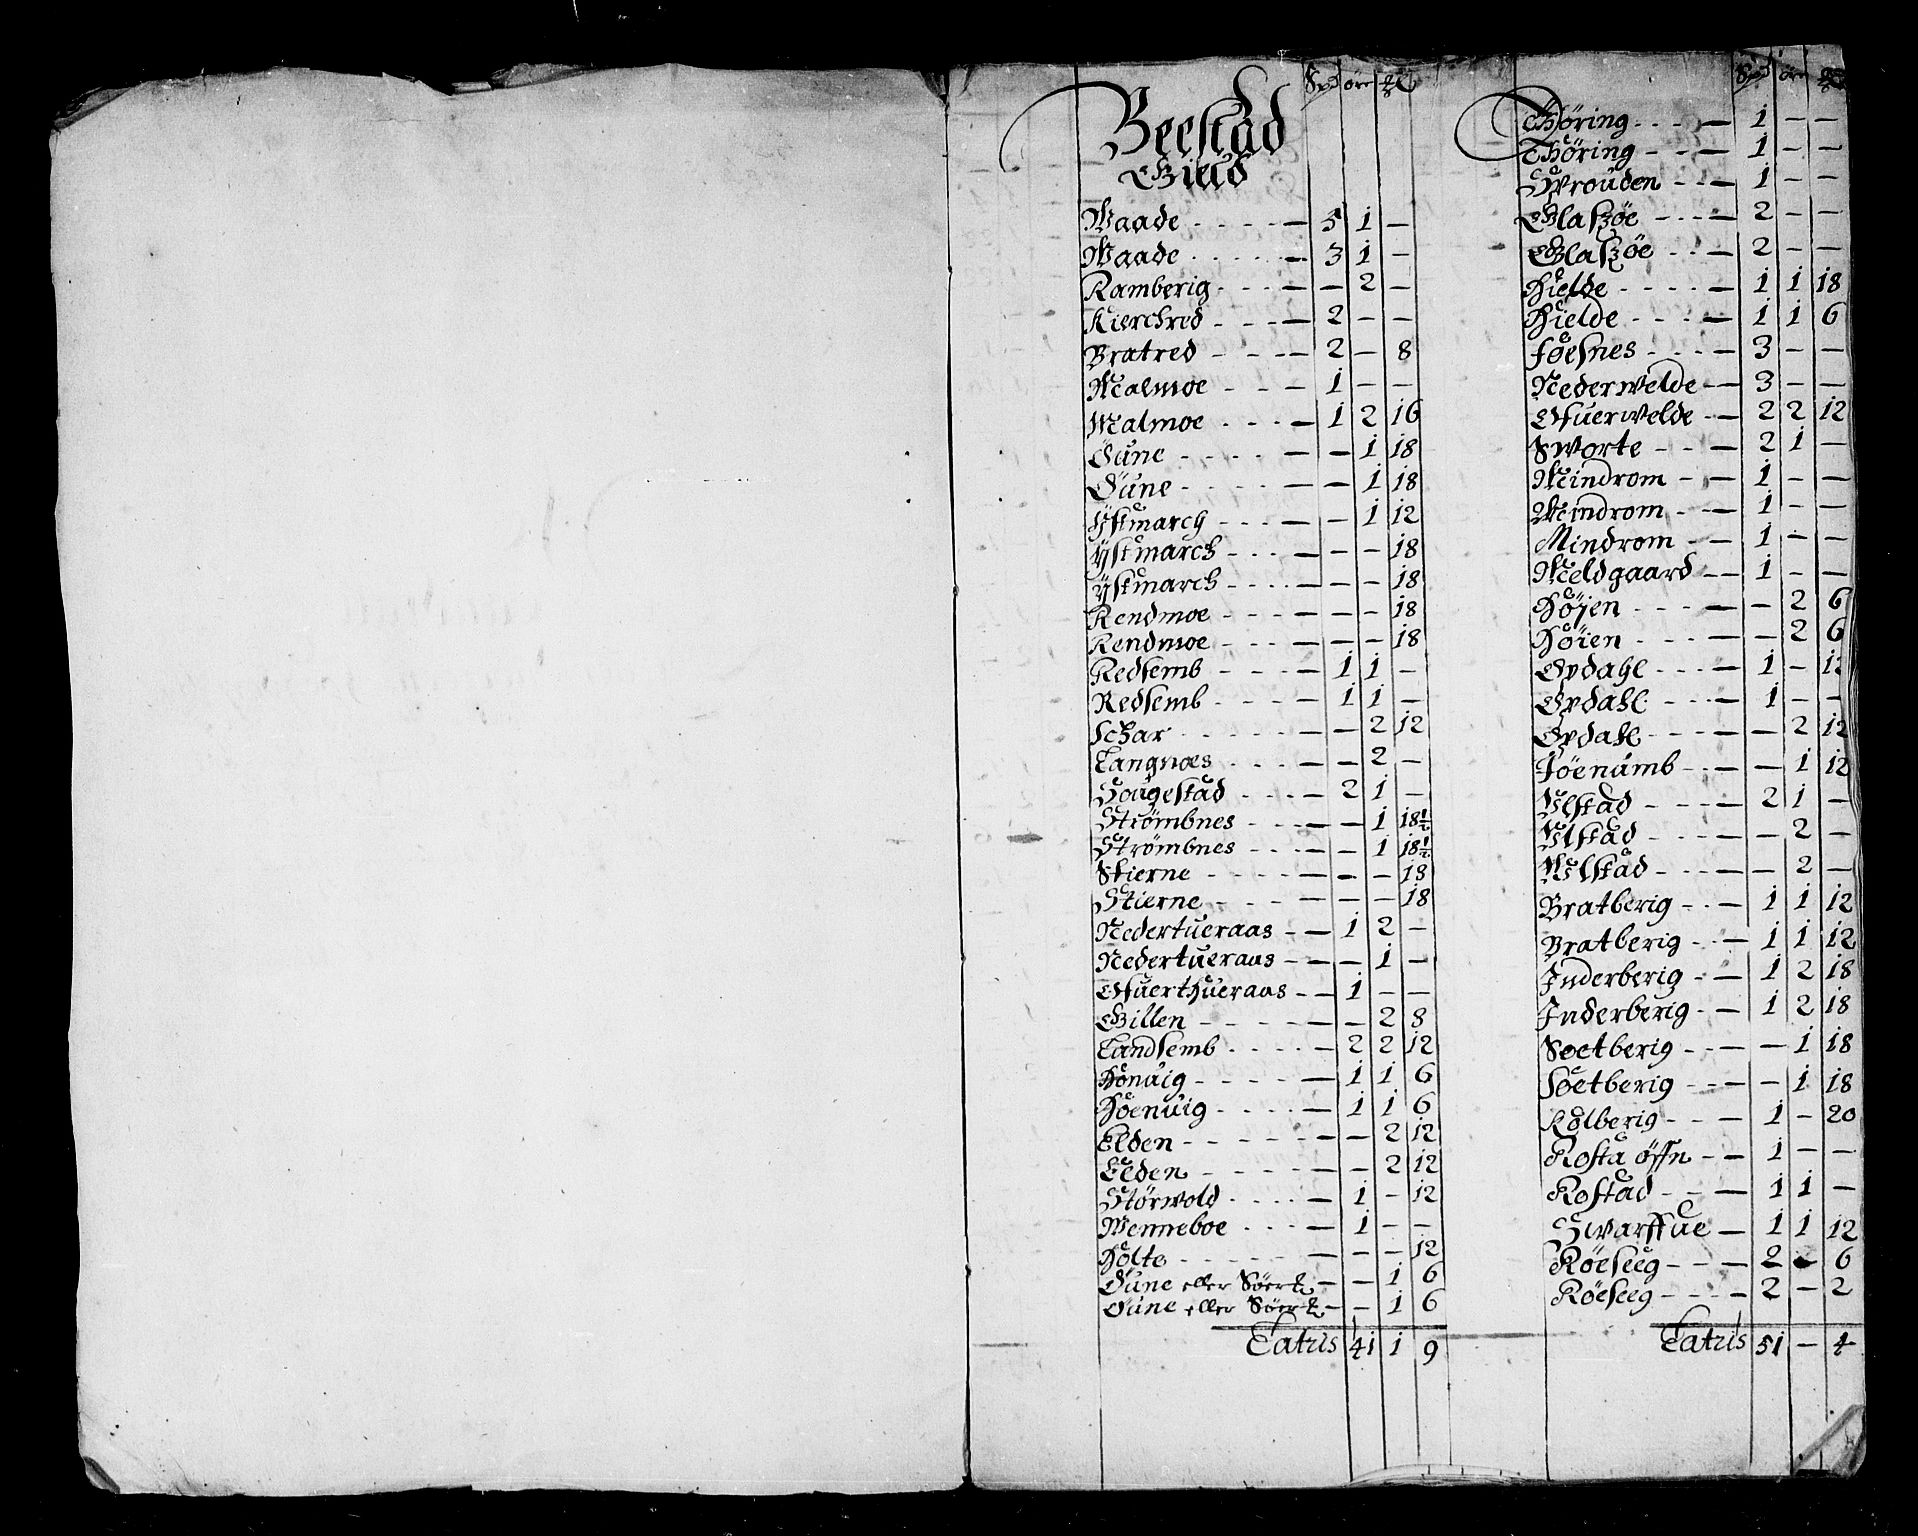 Beestad
Gield
Spd øre
Waade - - - - - 5 1 -
Waade - - - - - 3 1 -
Ramberig - - - - 2 -
Kierchred - - - 2 - -
Bratred - - - - 2 - 8
Malmoe - - - - 1 - -
Malmoe - - - 1 2 16
Dune - - - - - 1 18
Dune - - - - - 1 18
Ystmarch - - - - 1 12
Ystmarch - - - - - 18
Ystmarch - - - - - 18
Rendmoe - - - - - 18
Rendmoe - - - - - 18
Redsemb - - - 1 1 -
Redsemb - - - 1 1 -
Schar - - - - - 2 12
Langnæs - - - - 2 -
Sougestad - - - 2 1 -
Strømbnes - - - - 1 18½
Strømbnes - - - - 1 18½
Stierne - - - - - 18
Stierne - - - - - 18
Nedertueraas - - 1 2 -
Nedertueraas - - - 1 -
Ofuerthueraas - - 1 - -
Gillen - - - - - 2 8
Landsemb - - - 2 2 12
Hønuig - - - - 1 1 6
Høenuig - - - - 1 1 6
Elden - - - - - 2 12
Elden - - - - - 2 12
Størwold - - - 1 - 12
Wenneboe - - - 1 - -
Holte - - - - - - 12
Dune eller Søer - - 1 6
Dune eller Søer - - 1 6
Latris 41 1 9
Spd øre
Thøring - - - - 1 - -
Thøring - - - 1 - -
Sprouden - - - 1 - -
Glasøe - - - - 2 - -
Glasøe - - - 2 - -
Hielde - - - - 1 1 18
Hielde - - - - 1 1 6
Føesnes - - - - 3 - -
Nederwelde - - 3 - -
Ofuerwelde - - 2 2 12
Sworte - - - 2 1 -
Mindrom - - 1 - -
Mindrom - - - 1 - -
Mindrom - - 1 - -
Meldgaard - - 1 - -
Høyen - - - - - 2 6
Høien - - - - - 2 6
Opdahl - - - - 1 - 12
Opdahl - - - - 1 - -
Opdahl - - - - - 2 12
Jøenumb - - - - 1 12
Ulstad - - - - 2 1 -
Ulstad - - - - - 2 -
Ulstad - - - - - 2 -
Bratberig - - - 1 1 12
Bratberig - - - 1 1 12
Inderberig - - - 1 2 18
Inderberig - - 1 2 18
Soetberig - - - - 1 18
Soetberig - - - - 1 18
Kolberig - - - 1 - 20
Rosta - - 1 - -
Rostad - - - - 1 1 -
Swarffue - 1 1 12
Røeseeg - - - 2 - 6
Røeseeg - - - - 2 - 2
Latris 51 - 4